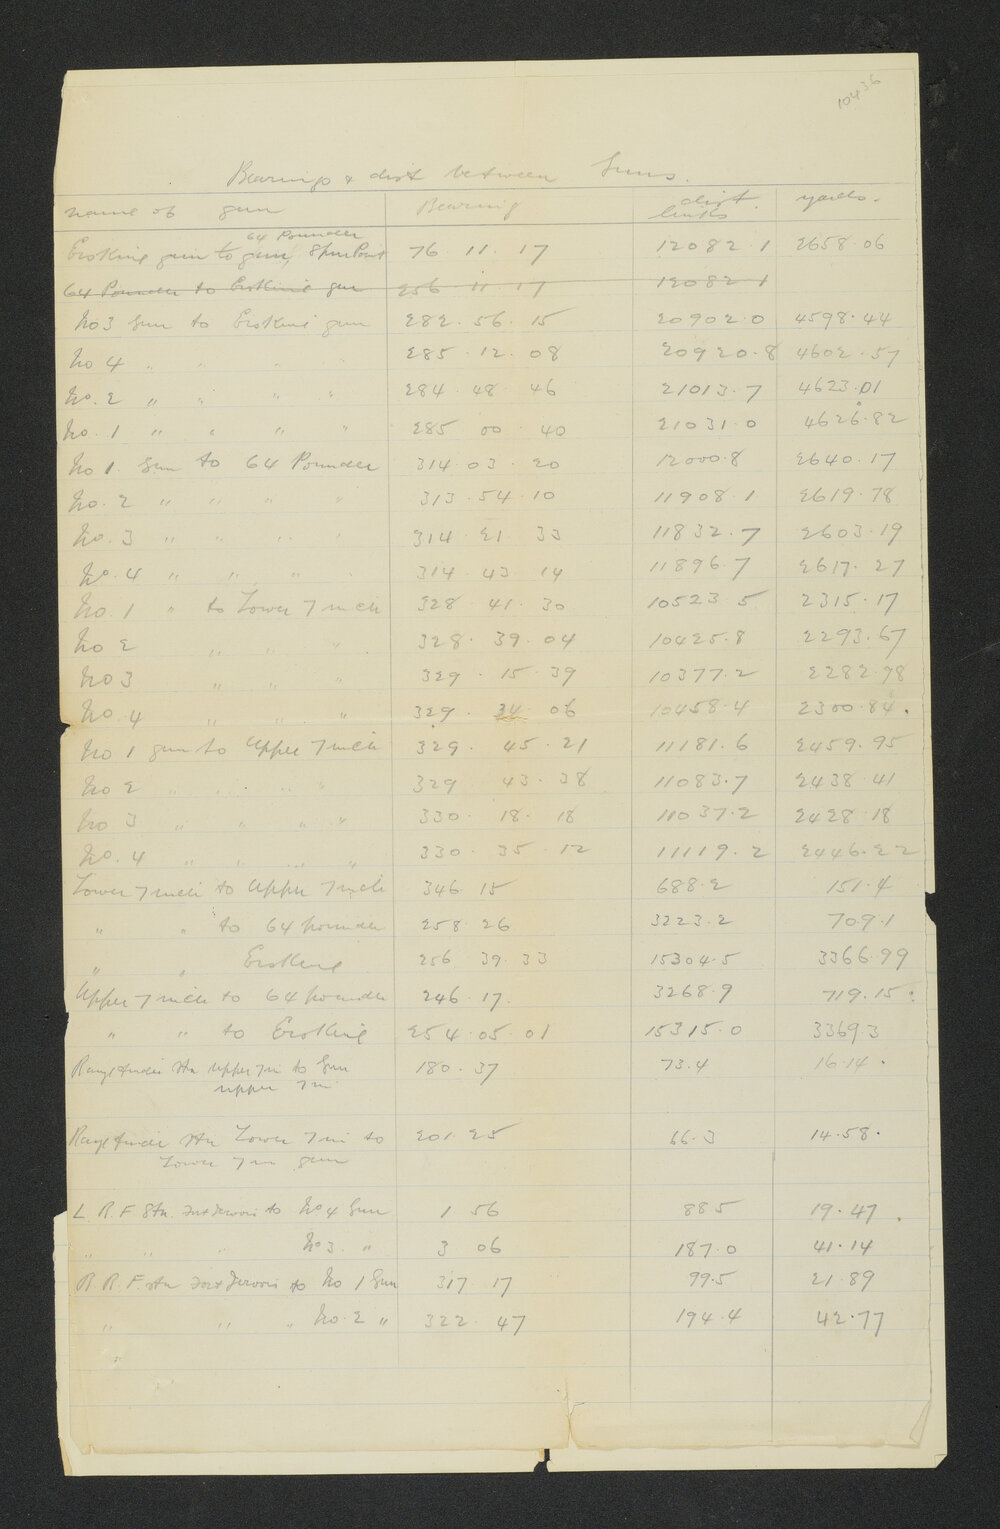 10436
Bearings & dist between Guns.
name of gun Bearing dist links yards.
64 Pounder
Erskine gun to gun, Spur Point 76. 11. 17 12082.1 2658.06
64 Pounder to Erskine gun 256 11 17 12082.1
No 3 Gun to Erskine gun 282. 56. 15 20902.0 4598.44
No 4 " " " " 285. 12. 08 20920.8 4602.57
No. 2 " " " " 284. 48. 46 21013.7 4623.01
No. 1 " " " " 285 00. 40 21031.0 4626.82
No 1. Gun to 64 Pounder 314. 03. 20 12000.8 2640.17
No. 2 " " " " 313. 54. 10 11908.1 2619.78
No. 3 " " " " 314. 21. 33 11832.7 2603.19
No. 4 " " " " 314. 43. 14 11896.7 2617.27
No. 1 " to Lower 7 inch 328. 41. 30 10523.5 2315.17
No 2 " " " 328. 39. 04 10425.8 2293.67
No 3 " " " 329. 15. 39 10377.2 2282.98
No. 4 " " " 329. 34. 06 10458.4 2300.84.
No 1 gun to Upper 7 inch 329. 45. 21 11181.6 2459.95
No 2 " " " " 329 43. 38 11083.7 2438.41
No 3 " " " " 330. 18. 18 11037.2 2428.18
No. 4 " " " " 330. 35. 12 11119.2 2446.22
Lower 7 inch to Upper 7 inch 346. 15 688.2 151.4
" " to 64 pounder 258. 26 3223.2 709.1
" " Erskine 256. 39. 33 15304.5 3366.99
Upper 7 inch to 64 pounder 246. 17. 3268.9 719.15.
" " to Erskine 254. 05. 01 15315.0 3369.3
Rangefinder Stn Upper 7in to Gun 180. 37 73.4 16.14.
upper 7 in
Rangefinder Stn Lower 7 in to 201. 25 66.3 14.58.
Lower 7 in gun
L. R. F. Stn. Fort Jervois to No 4 Gun 1 56 88 5 19.47.
" " " No 3. " 3 06 187.0 41.14
R. R. F. Stn Fort Jervois to No 1 Gun 317. 17 99.5 21.89
" " " No. 2 " 322. 47 194.4 42.77
"